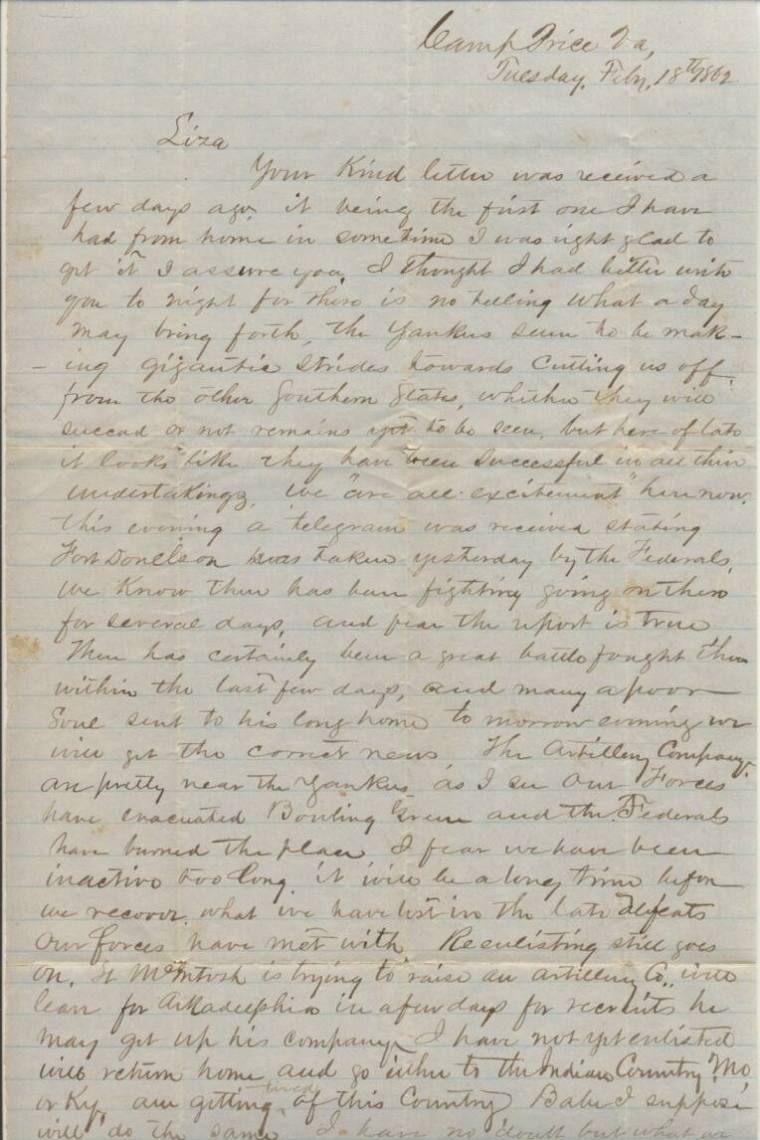 Camp Price Va,
Tuesday, Feby, 18th 1862
Liza
Your Kind letter was received a
few days ago, it being the first one I have
had from home in sometime I was right glad to
get it I assure you. I thought I had better write
you to night for there is no telling what a day
may bring forth, the Yankees seem to be mak-
-ing gigantic strides towards cutting us off
from the other Southern States, whether they will
succeed or not remains yet to be seen, but here of late
it looks like they have been successful in all their
undertakings, we "are all excitement" here now,
this evening a telegram was received stating
Fort Donelson was taken yesterday by the Federals,
we know there has been fighting going on there
for several days, and fear the report is true
There has certainly been a great battle fought there
within the last few days, and many a poor
Soul sent to his long home to morrow evening we
will get the correct news, The Artillery Company
are pretty near the Yankees, as I see Our Forces
have evacuated Bowling Green and the Federals
have burned the place I fear we have been
inactive too long, it will be a long time before
we recover what we have lost in the late defeats
Our forces have met with Reenlisting still goes
on, Lt McIntosh is trying to raise an artillery Co., will
leave for Arkadelphia in a few days for recruits he
may get up his company I have not yet enlisted
will return home and go either to the Indian Country, Mo,
or Ky, am getting tired of this Country Babe I suppose
will do the same I have no doubt but what